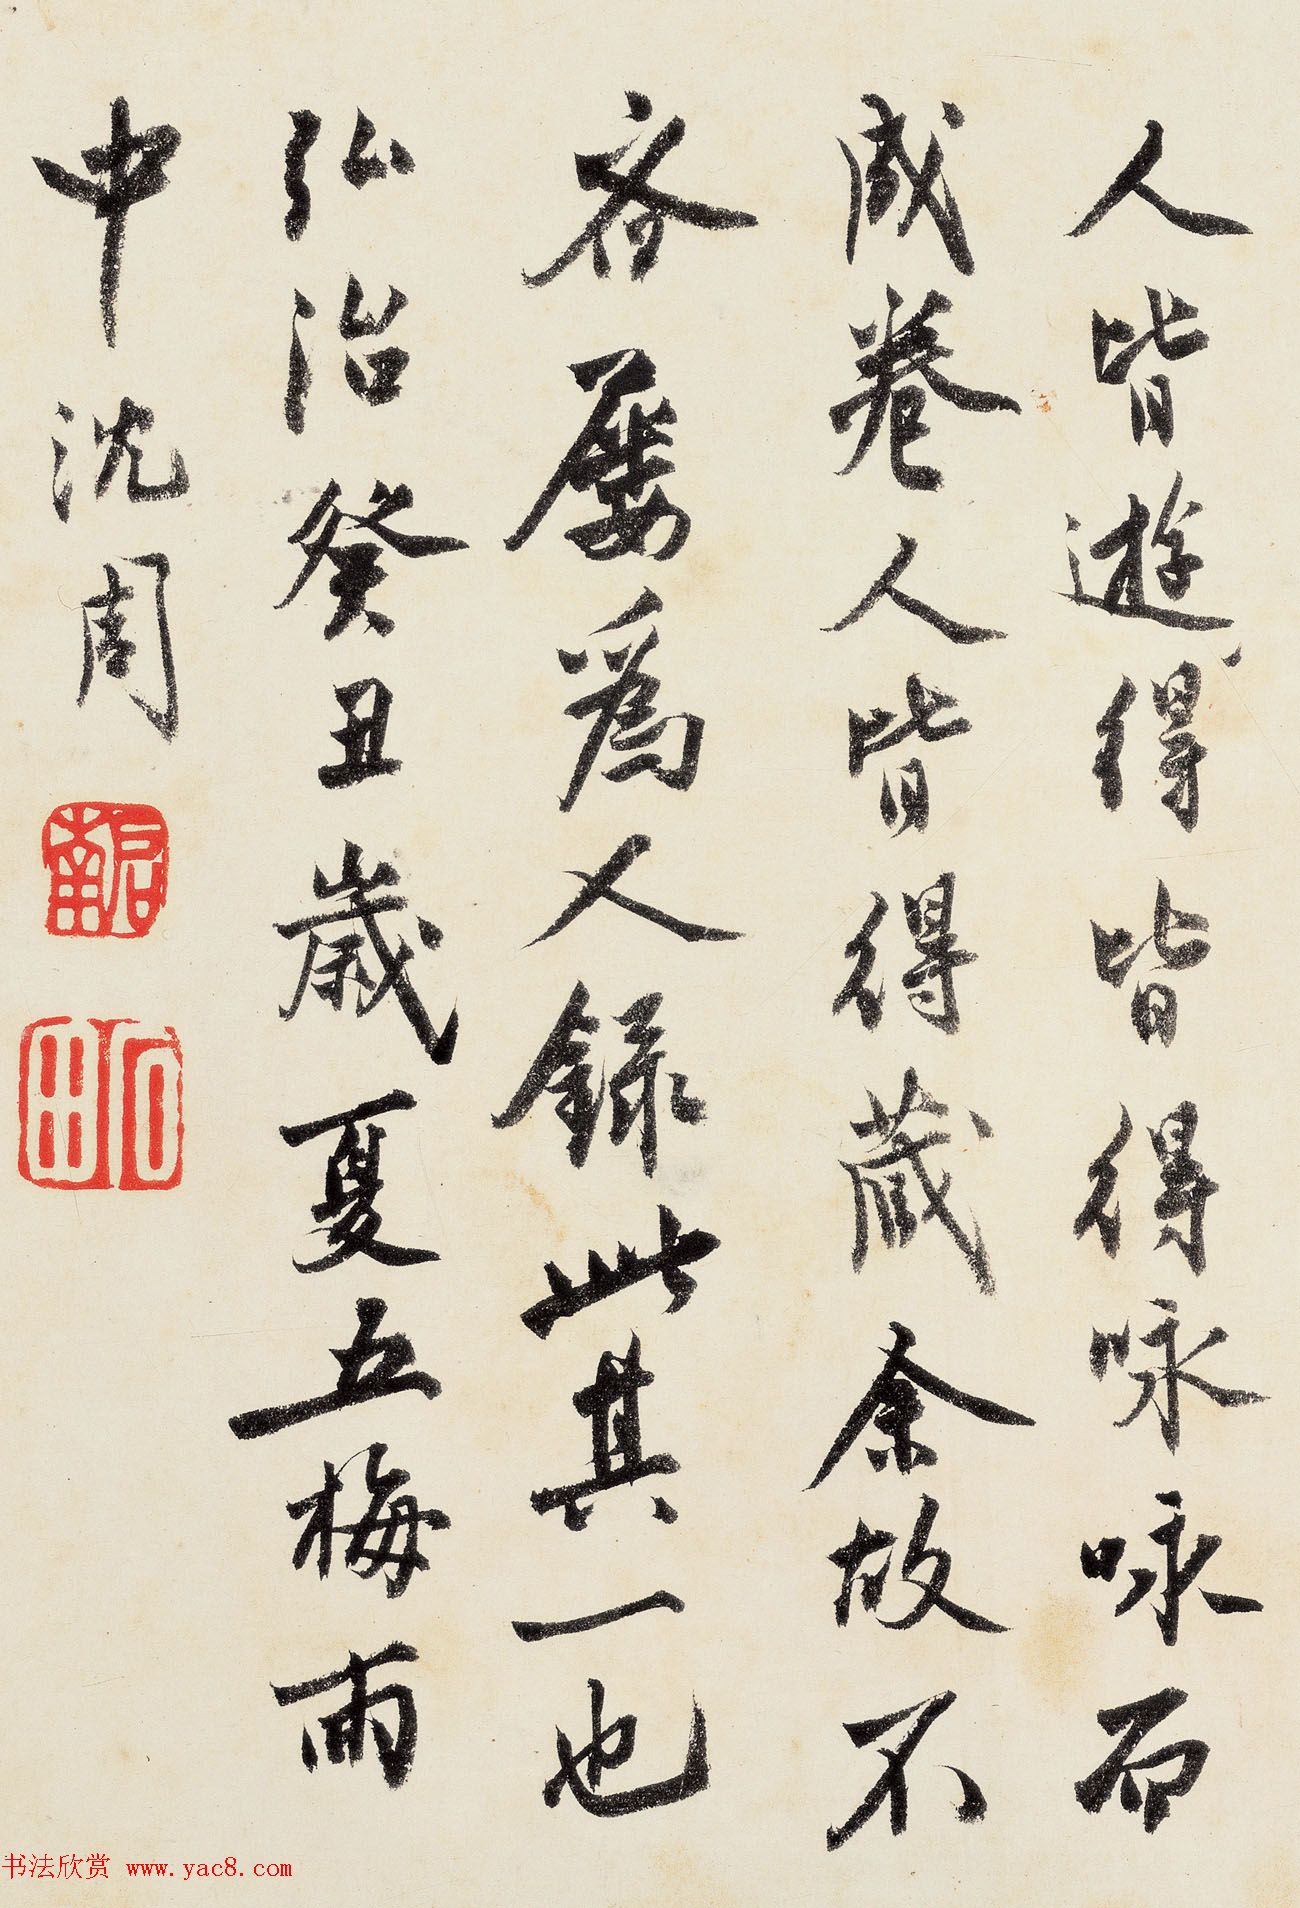 人皆遊得皆得咏咏而
成卷人皆得蔵余故不
吝屡為人録此其一也
弘治癸丑歲夏五梅雨
中沈周
啟南
石田
书法欣赏 www.yac8.com